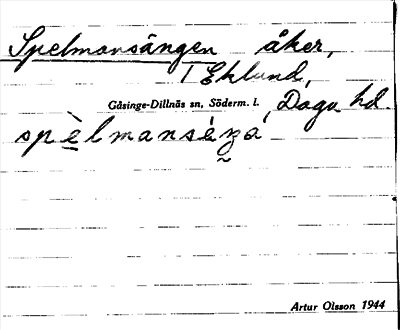 Spelmansängen åker,
1 Eklund,
Gåsinge-Dillnäs sn, Söderm. l. Daga hd.
spèlmanséŋa
Artur Olsson 1944